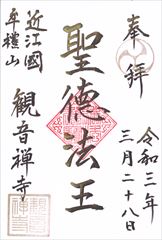 奉拝
令和三年
三月二十八日
聖德法王
近江國
牟禮山
観音禅寺